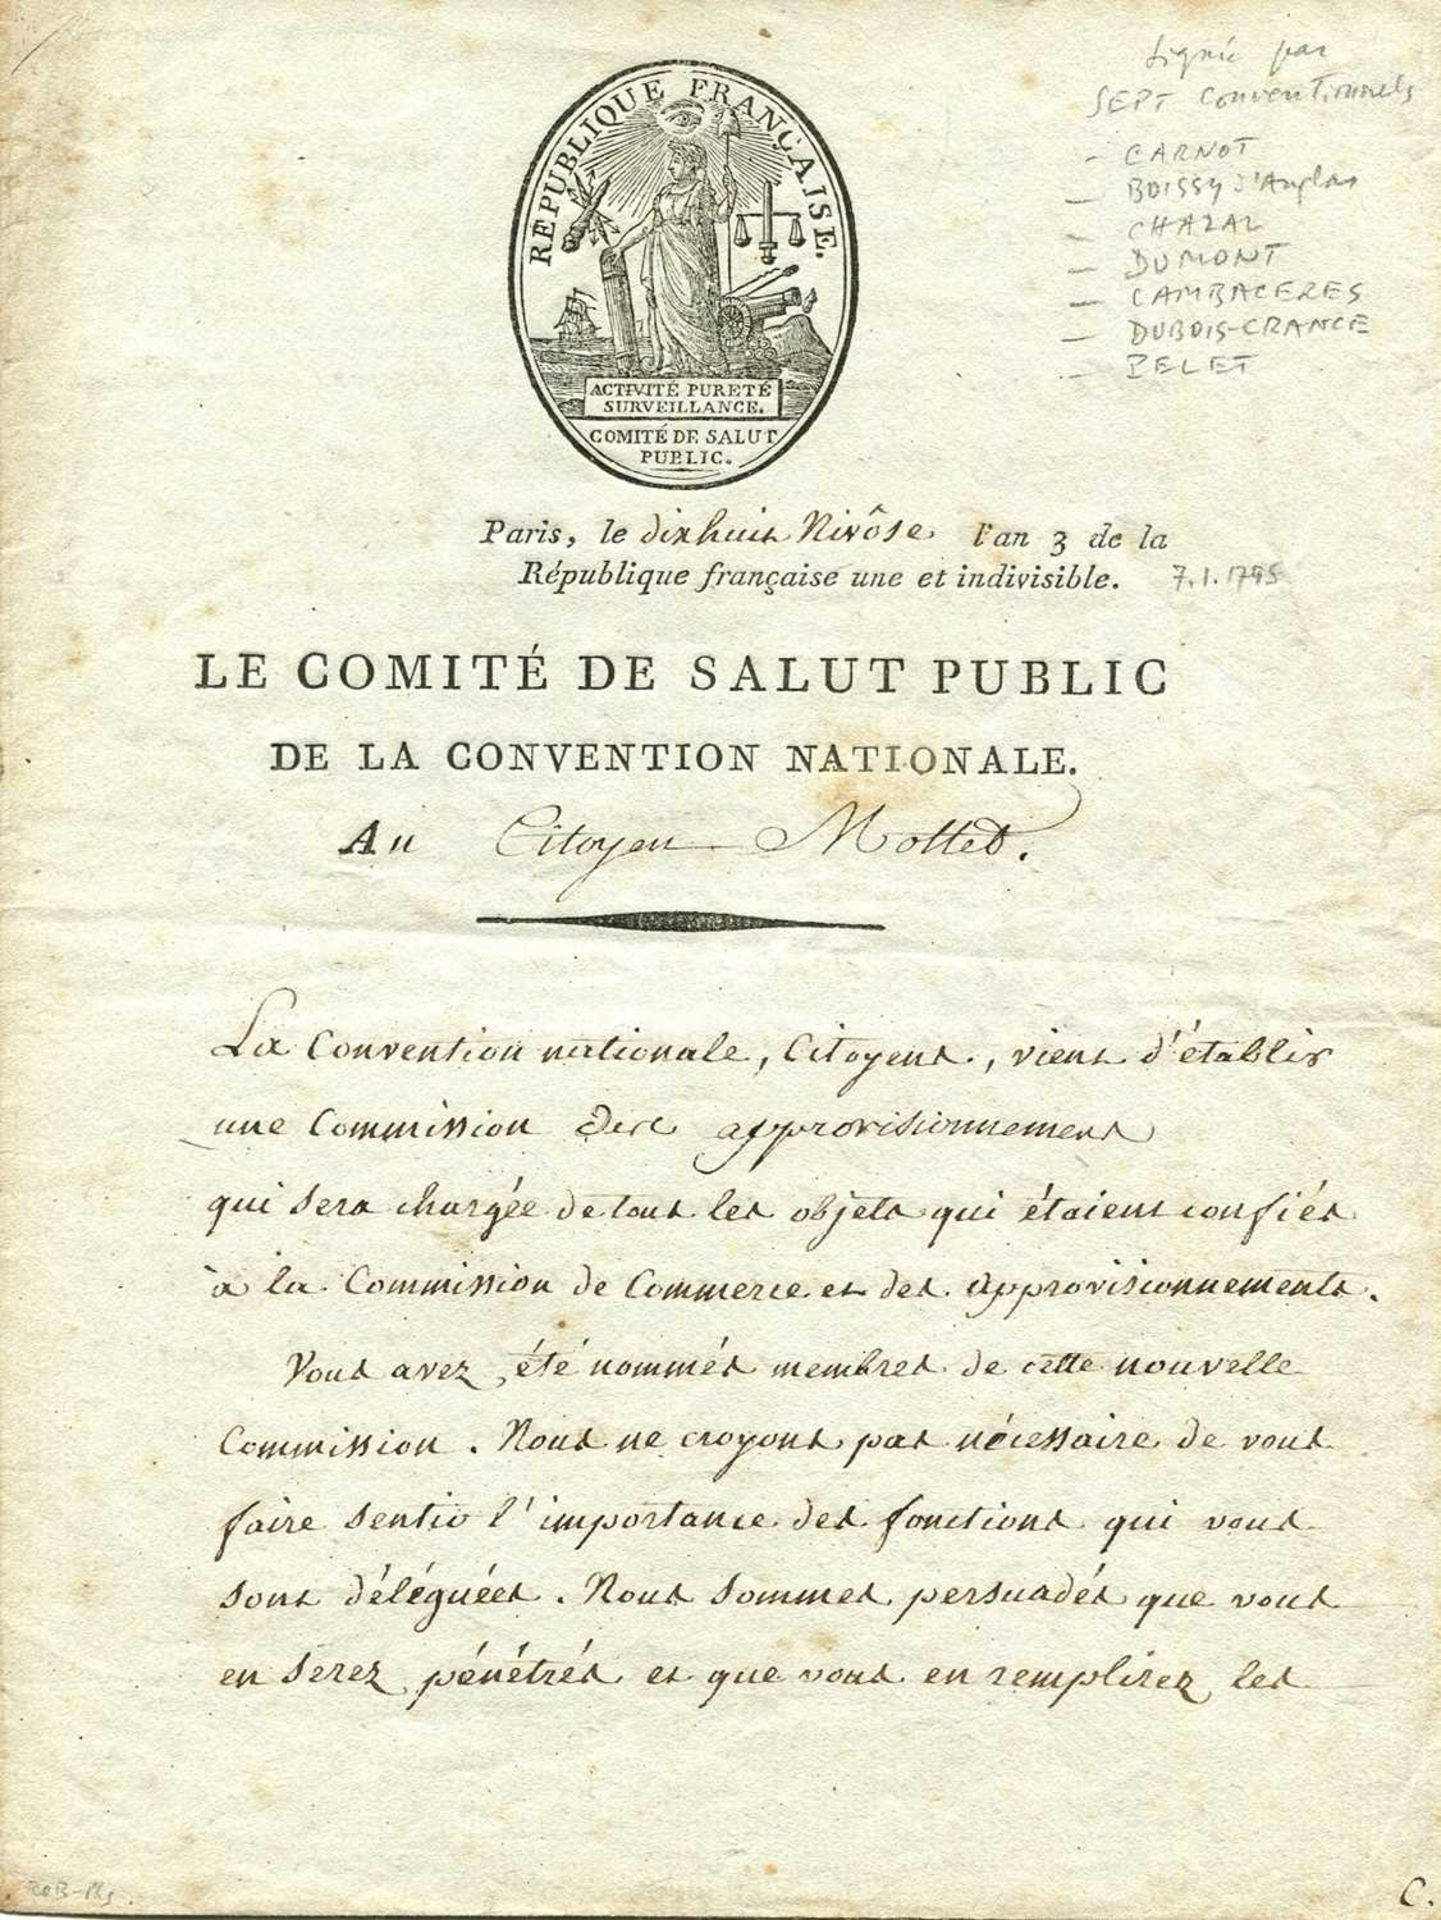 signée par
SEPT conventionnels
- CARNOT
- BOISSY d'Anglas
- CHAZAL
- DUMONT
- CAMBACERES
- DUBOIS-CRANCE
- PELET
RÉPUBLIQUE FRANÇAISE.
ACTIVITÉ PURETÉ
SURVEILLANCE.
COMITÉ DE SALUT
PUBLIC.
Paris, le dixhuit Nivôse l'an 3 de la
République française une et indivisible. 7.1.1795
LE COMITÉ DE SALUT PUBLIC
DE LA CONVENTION NATIONALE.
Au Citoyen Mottet.
La Convention nationale, Citoyens, vient d'établir
une Commission des approvisionnements
qui sera chargée de tous les objets qui étaient confiés
à la Commission de Commerce et des approvisionnements.
Vous avez été nommés membres de cette nouvelle
Commission. Nous ne croyons pas nécessaire de vous
faire sentir l'importance des fonctions qui vous
sont déléguées. Nous sommes persuadés que vous
en serez pénétrés et que vous en remplirez les
C.